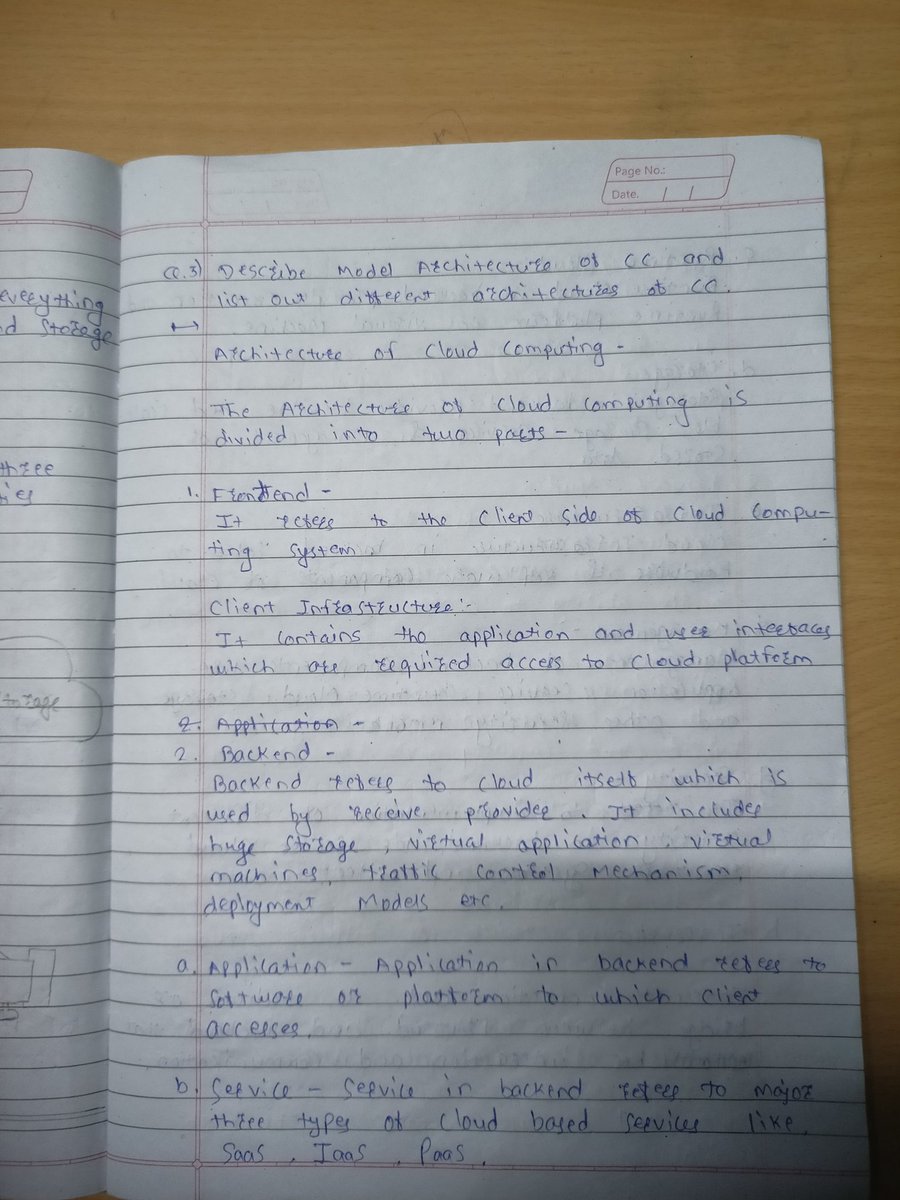 everything
nd storage
three
ties
torage
Page No.:
Date. / /
Q.3) Describe Model Architecture of CC and
list out different architectures of CC.
Architecture of Cloud Computing -
The Architecture of Cloud Computing is
divided into two parts -
1. Frontend -
It refers to the Client side of Cloud Compu-
ting system
Client Infrastructure :-
It contains the application and user interfaces
which are required access to cloud platform
2. Application -
2. Backend -
Backend refers to cloud itself which is
used by receive provider. It includes
huge storage, virtual application, virtual
machines, traffic control Mechanism,
deployment Models etc.
a. Application - Application in backend refers to
software or platform to which client
accesses.
b. Service - Service in backend refers to major
three types of cloud based services like,
SaaS, IaaS, PaaS.